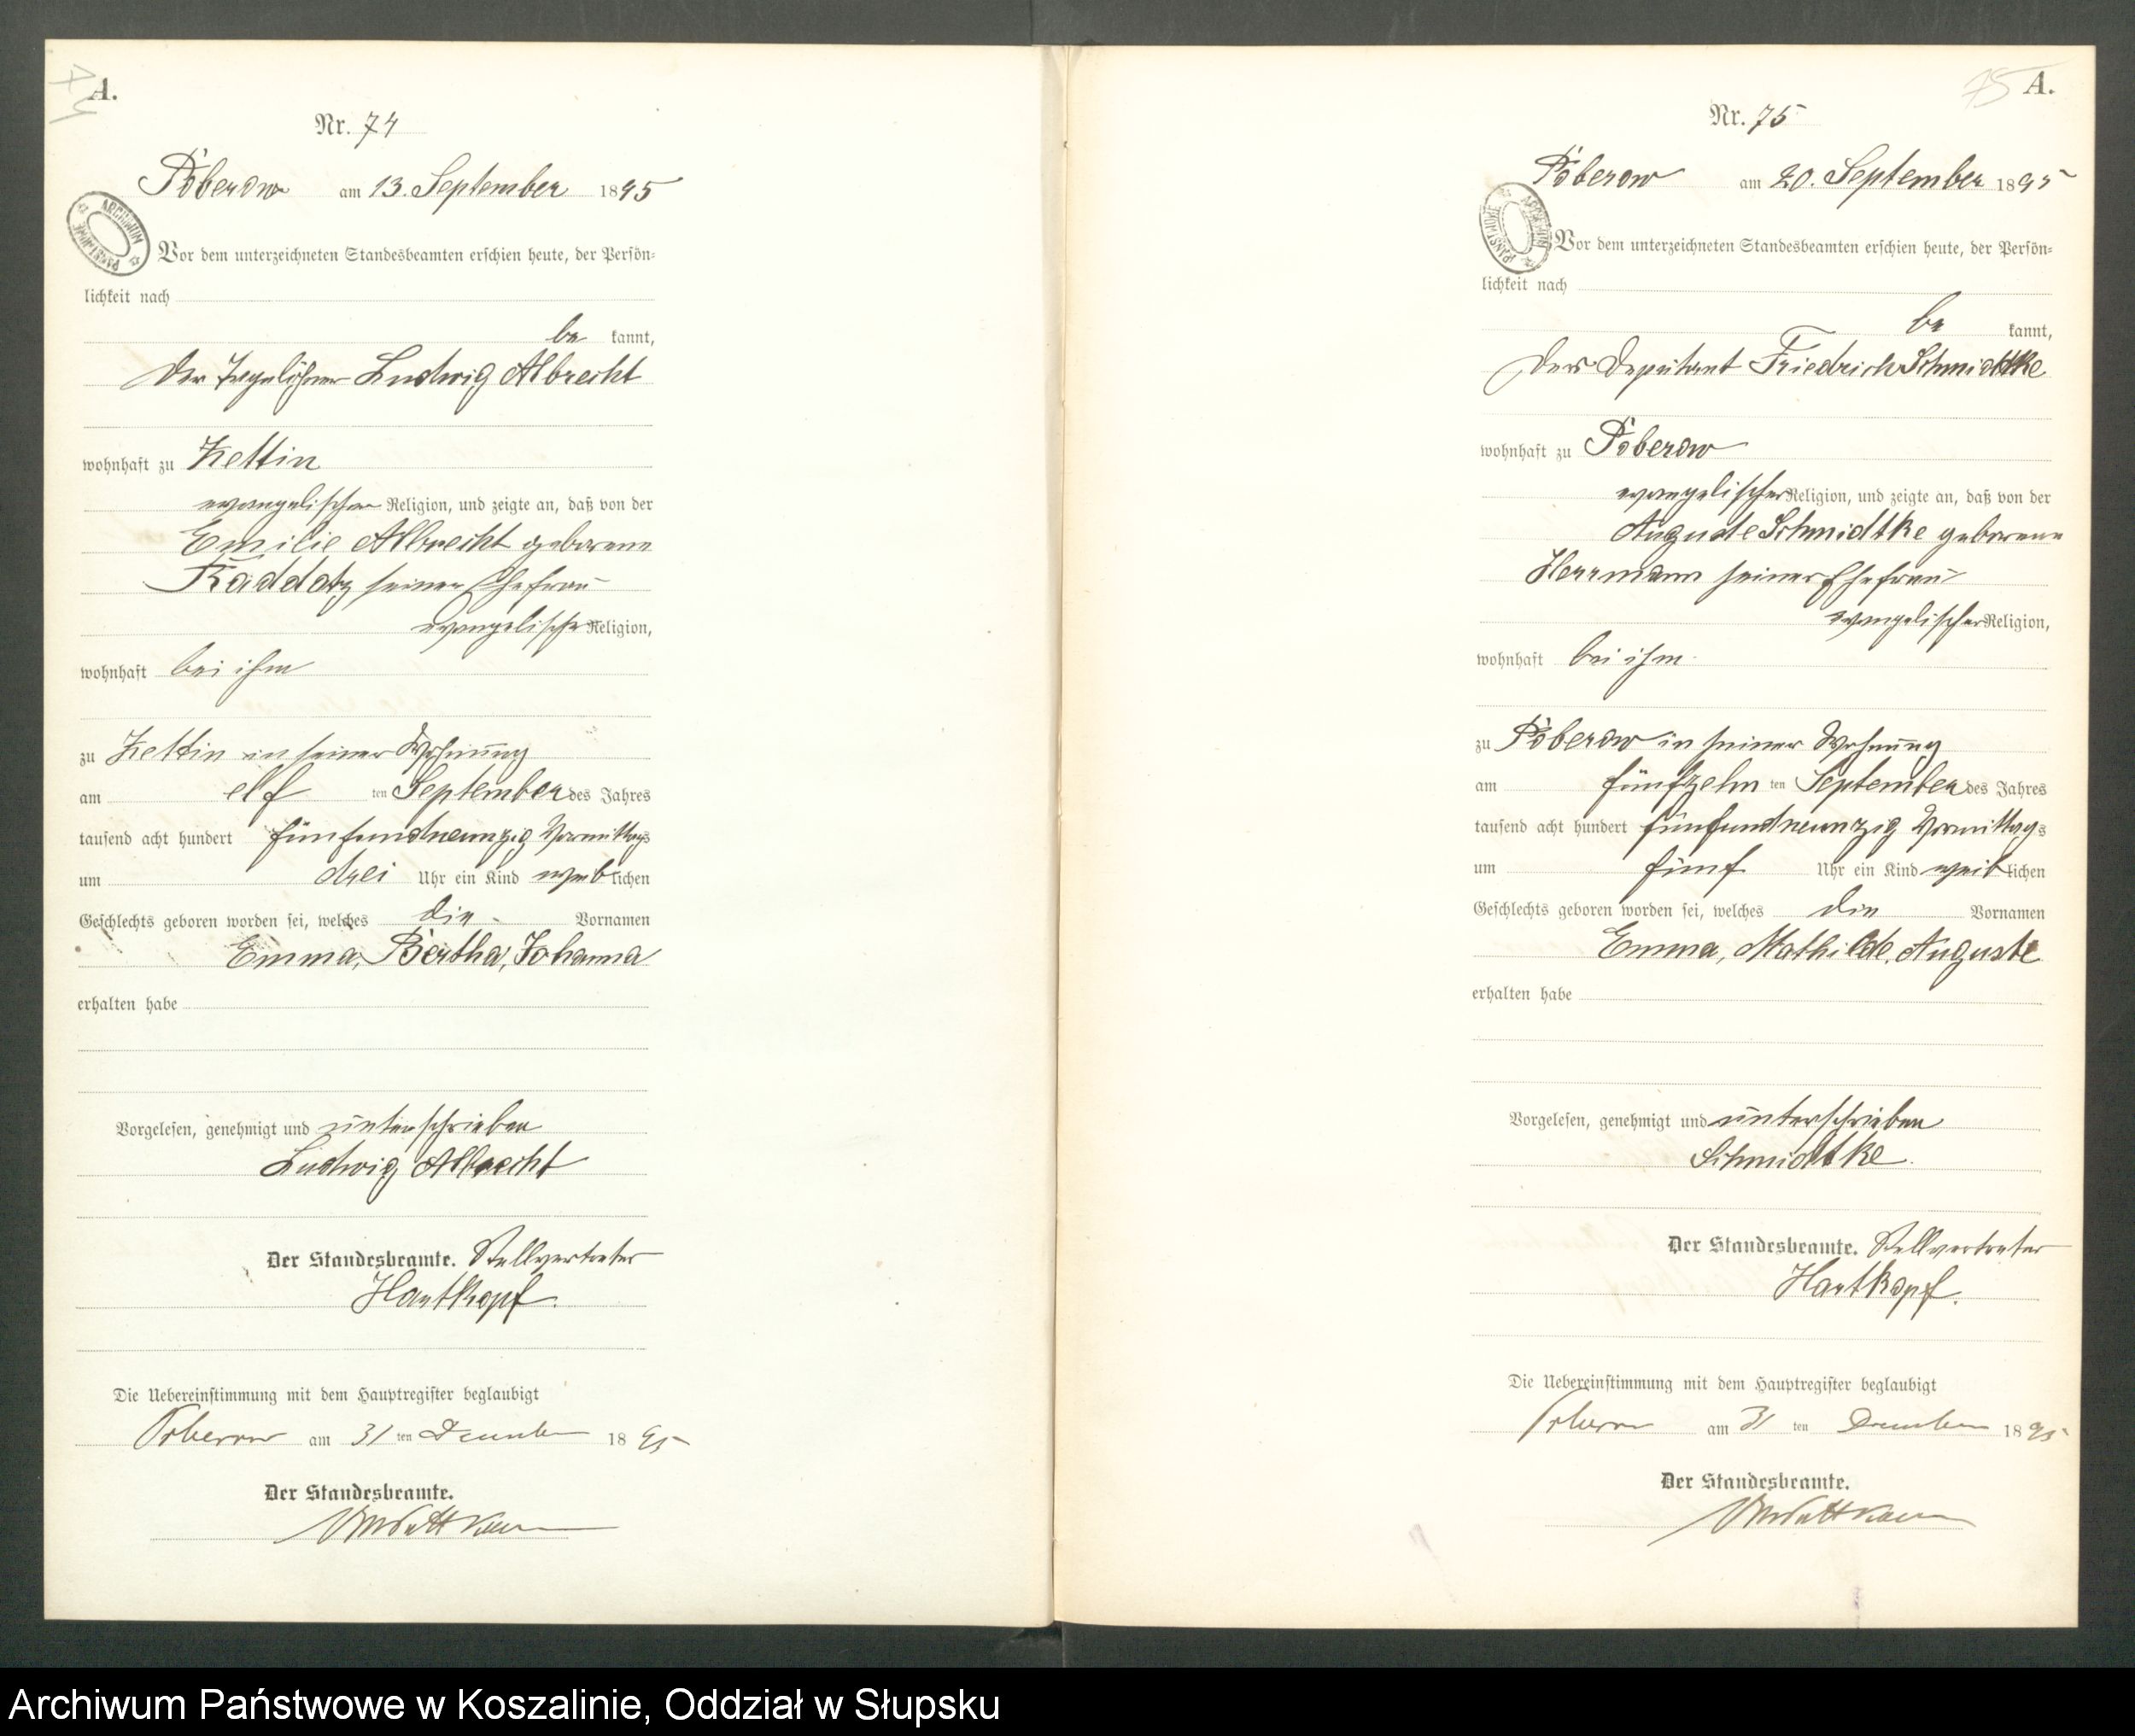 A.
74
Nr. 74
Poberow am 13. September 1895
ARCHIWUM PAŃSTWOWE
Vor dem unterzeichneten Standesbeamten erschien heute, der Persön-
lichkeit nach
be kannt,
der Tagelöhner Ludwig Albrecht
wohnhaft zu Zettin
evangelischer Religion, und zeigte an, daß von der
Emilie Albrecht geborene
Raddatz seiner Ehefrau
evangelischer Religion,
wohnhaft bei ihm
zu Zettin in seiner Wohnung
am elf ten September des Jahres
tausend acht hundert fünfundneunzig Vormittags
um drei Uhr ein Kind weiblichen
Geschlechts geboren worden sei, welches die Vornamen
Emma, Bertha, Johanna
erhalten habe
Vorgelesen, genehmigt und unterschrieben
Ludwig Albrecht
Der Standesbeamte. Stellvertreter
Hartkopf.
Die Uebereinstimmung mit dem Hauptregister beglaubigt
Poberow am 31 ten Dezember 1895
Der Standesbeamte.
75 A.
Nr. 75
Poberow am 20. September 1895
ARCHIWUM PAŃSTWOWE
Vor dem unterzeichneten Standesbeamten erschien heute, der Persön-
lichkeit nach
be kannt,
der Deputant Friedrich Schmidtke
wohnhaft zu Poberow
evangelischer Religion, und zeigte an, daß von der
Auguste Schmidtke geborene
Herrmann seiner Ehefrau
evangelischer Religion,
wohnhaft bei ihm
zu Poberow in seiner Wohnung
am fünfzehn ten September des Jahres
tausend acht hundert fünfundneunzig Vormittags
um fünf Uhr ein Kind weiblichen
Geschlechts geboren worden sei, welches die Vornamen
Emma, Mathilde, Auguste
erhalten habe
Vorgelesen, genehmigt und unterschrieben
Schmidtke.
Der Standesbeamte. Stellvertreter
Hartkopf.
Die Uebereinstimmung mit dem Hauptregister beglaubigt
Poberow am 31 ten Dezember 1895
Der Standesbeamte.
Archiwum Państwowe w Koszalinie, Oddział w Słupsku